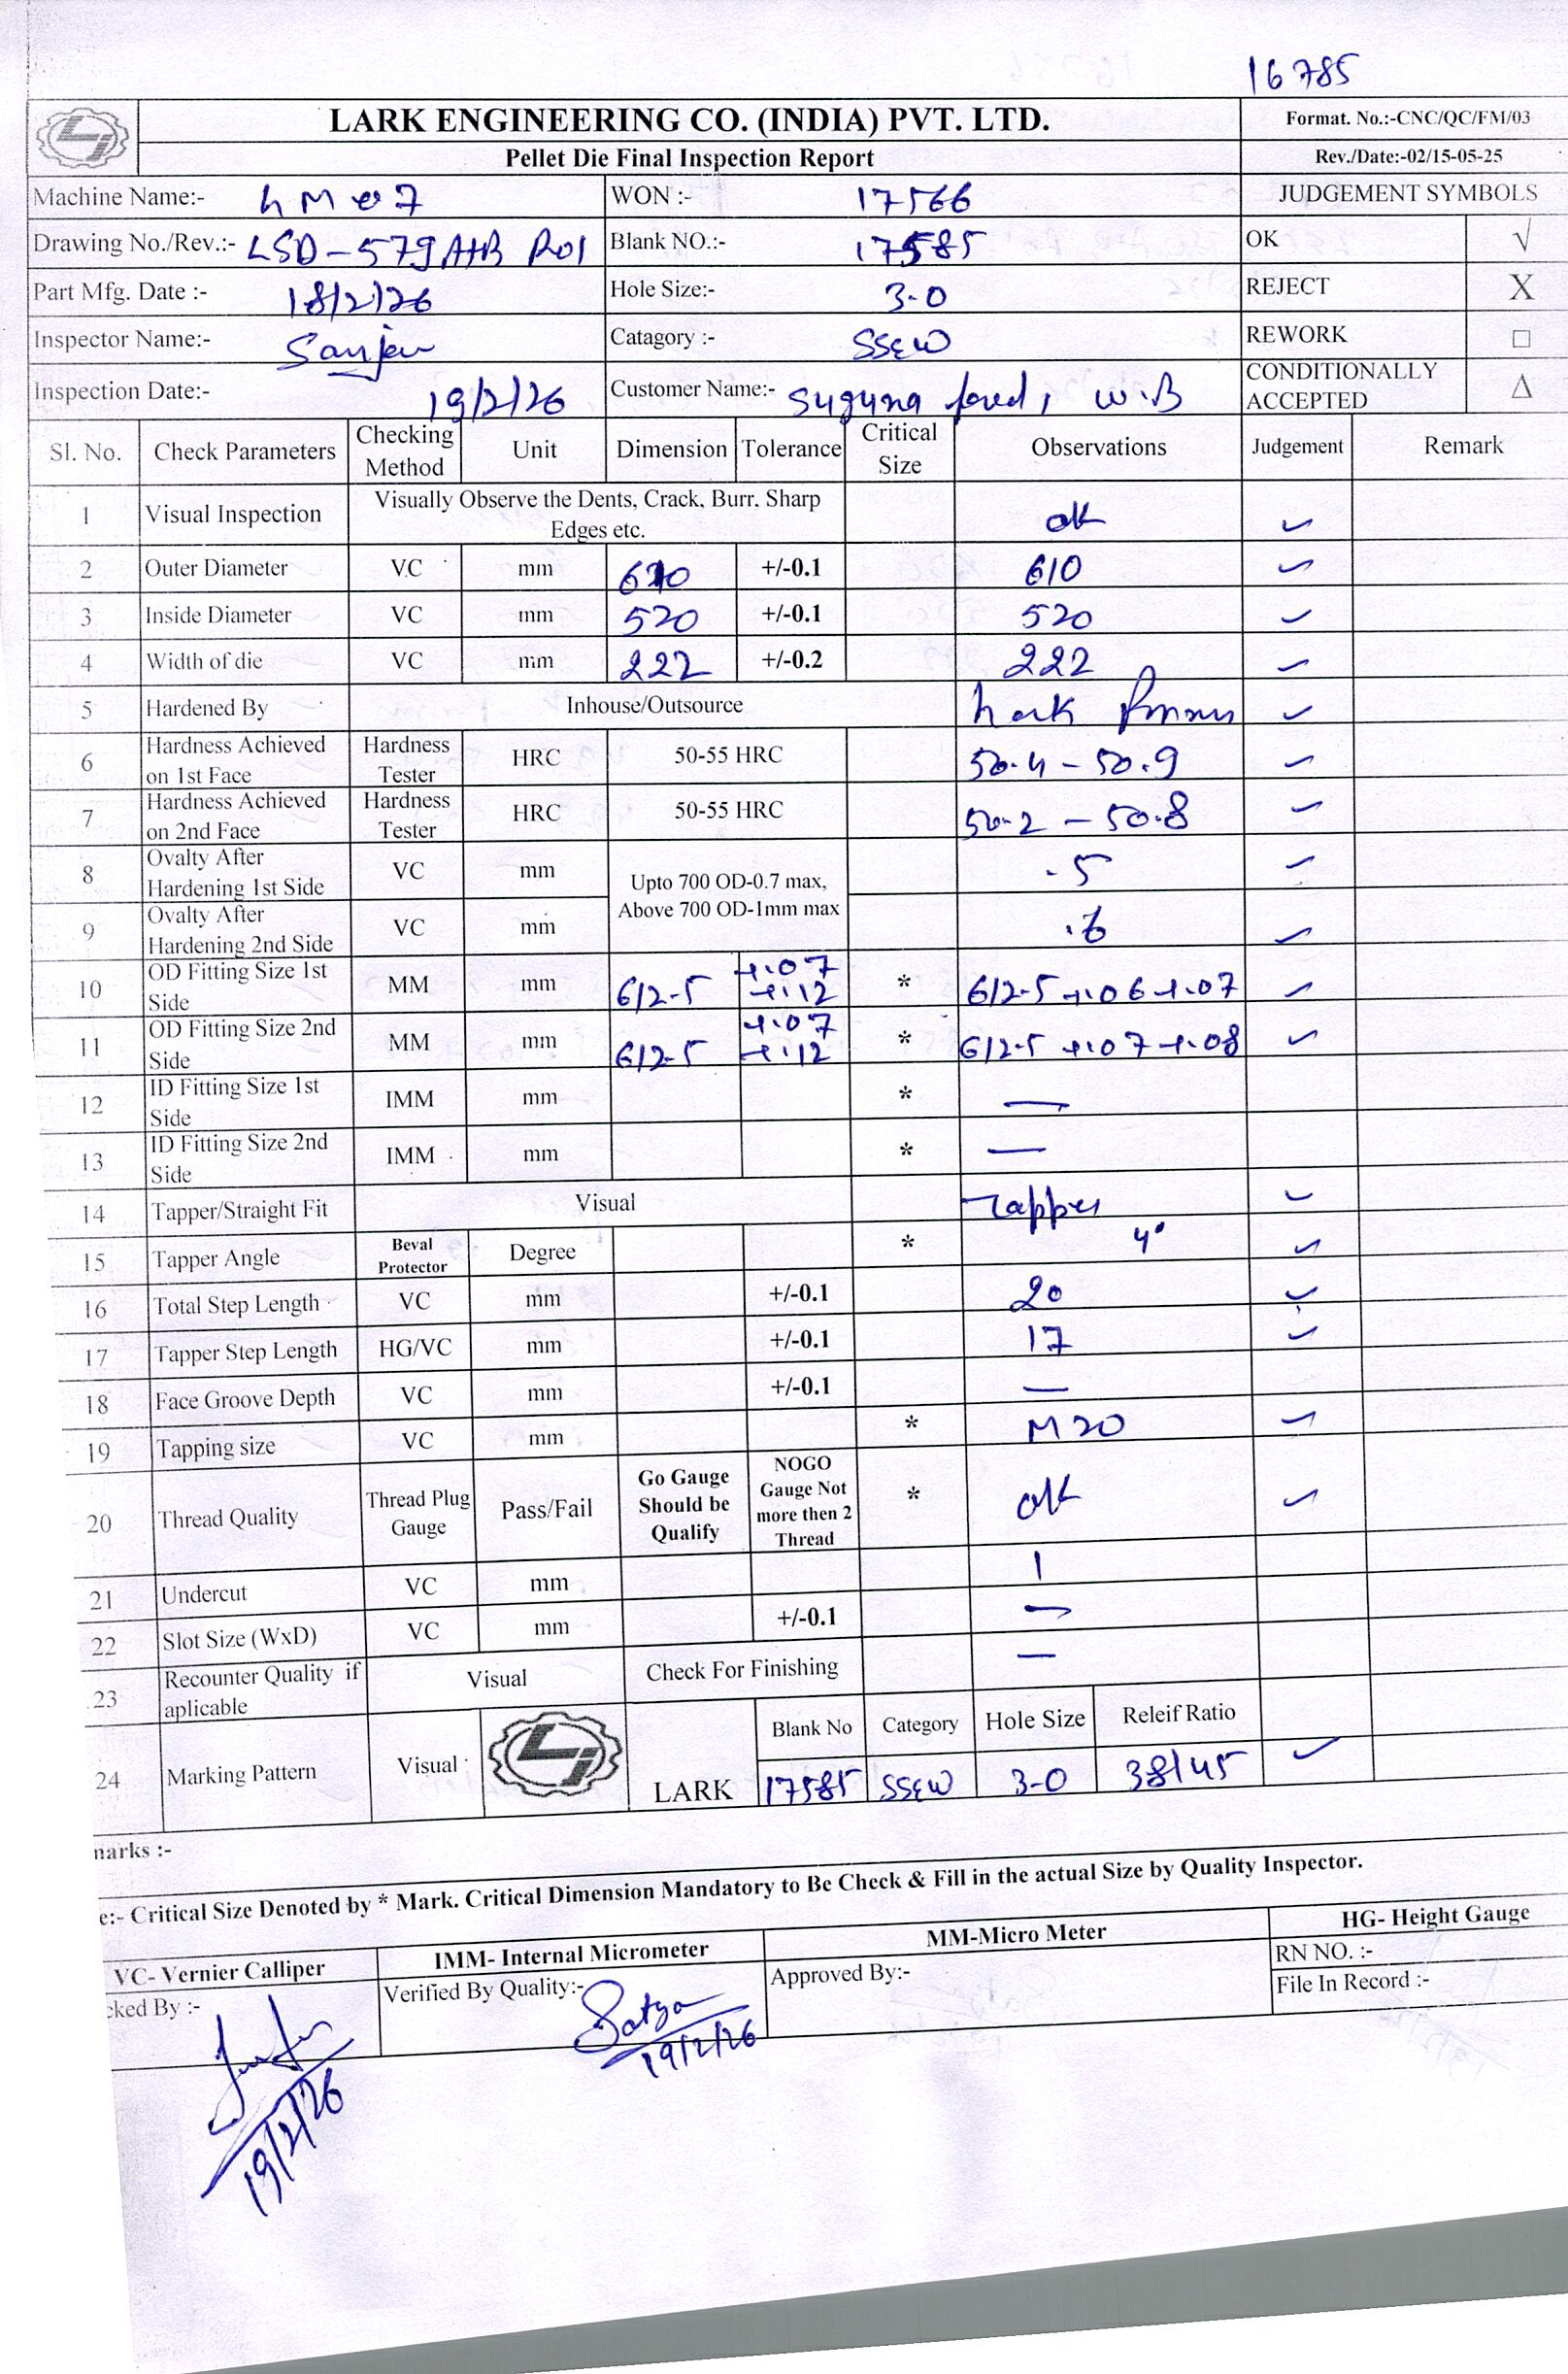 16785
LARK ENGINEERING CO. (INDIA) PVT. LTD.
Format. No.:-CNC/QC/FM/03
Pellet Die Final Inspection Report
Rev./Date:-02/15-05-25
Machine Name:- WON :- 17566 JUDGEMENT SYMBOLS
Drawing No./Rev.:- LSD-579A+B R01 Blank NO.:- 17585 OK √
Part Mfg. Date :- 18/2/26 Hole Size:- 3-0 REJECT X
Inspector Name:- Sanjeev Catagory :- SSEW REWORK □
Inspection Date:- 19/2/26 Customer Name:- Suguna W.B CONDITIONALLY ACCEPTED Δ
Sl. No. Check Parameters Checking Method Unit Dimension Tolerance Critical Size Observations Judgement Remark
1 Visual Inspection Visually Observe the Dents, Crack, Burr, Sharp Edges etc. ok ✓
2 Outer Diameter VC mm 610 +/-0.1 610 ✓
3 Inside Diameter VC mm 520 +/-0.1 520 ✓
4 Width of die VC mm 222 +/-0.2 222 ✓
5 Hardened By Inhouse/Outsource ✓
6 Hardness Achieved on 1st Face Hardness Tester HRC 50-55 HRC 50.4 - 50.9 ✓
7 Hardness Achieved on 2nd Face Hardness Tester HRC 50-55 HRC 50.2 - 50.8 ✓
8 Ovalty After Hardening 1st Side VC mm Upto 700 OD-0.7 max, Above 700 OD-1mm max .5 ✓
9 Ovalty After Hardening 2nd Side VC mm .6 ✓
10 OD Fitting Size 1st Side MM mm 612.5 +.07 +.12 * 612.5 +.06 +.07 ✓
11 OD Fitting Size 2nd Side MM mm 612.5 +.07 +.12 * 612.5 +.07 +.08 ✓
12 ID Fitting Size 1st Side IMM mm * —
13 ID Fitting Size 2nd Side IMM mm * —
14 Tapper/Straight Fit Visual Tapper ✓
15 Tapper Angle Beval Protector Degree * 4° ✓
16 Total Step Length VC mm +/-0.1 20 ✓
17 Tapper Step Length HG/VC mm +/-0.1 17 ✓
18 Face Groove Depth VC mm +/-0.1 —
19 Tapping size VC mm * M20 ✓
20 Thread Quality Thread Plug Gauge Pass/Fail Go Gauge Should be Qualify NOGO Gauge Not more then 2 Thread * ok ✓
21 Undercut VC mm 1
22 Slot Size (WxD) VC mm +/-0.1 —
23 Recounter Quality if aplicable Visual Check For Finishing —
24 Marking Pattern Visual LARK Blank No Category Hole Size Releif Ratio
17585 SSEW 3-0 38/45 ✓
marks :-
e:- Critical Size Denoted by * Mark. Critical Dimension Mandatory to Be Check & Fill in the actual Size by Quality Inspector.
VC- Vernier Calliper IMM- Internal Micrometer MM-Micro Meter HG- Height Gauge
cked By :- Verified By Quality:- Satya Approved By:- RN NO. :-
File In Record :-
19/2/26
19/2/26